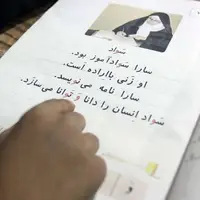 سَواد
سارا سَوادآموز بود.
او زَنی بااراده است.
سارا نامه می‌نویسد.
سَواد انسان را دانا وَ تَوانا می‌سازَد.